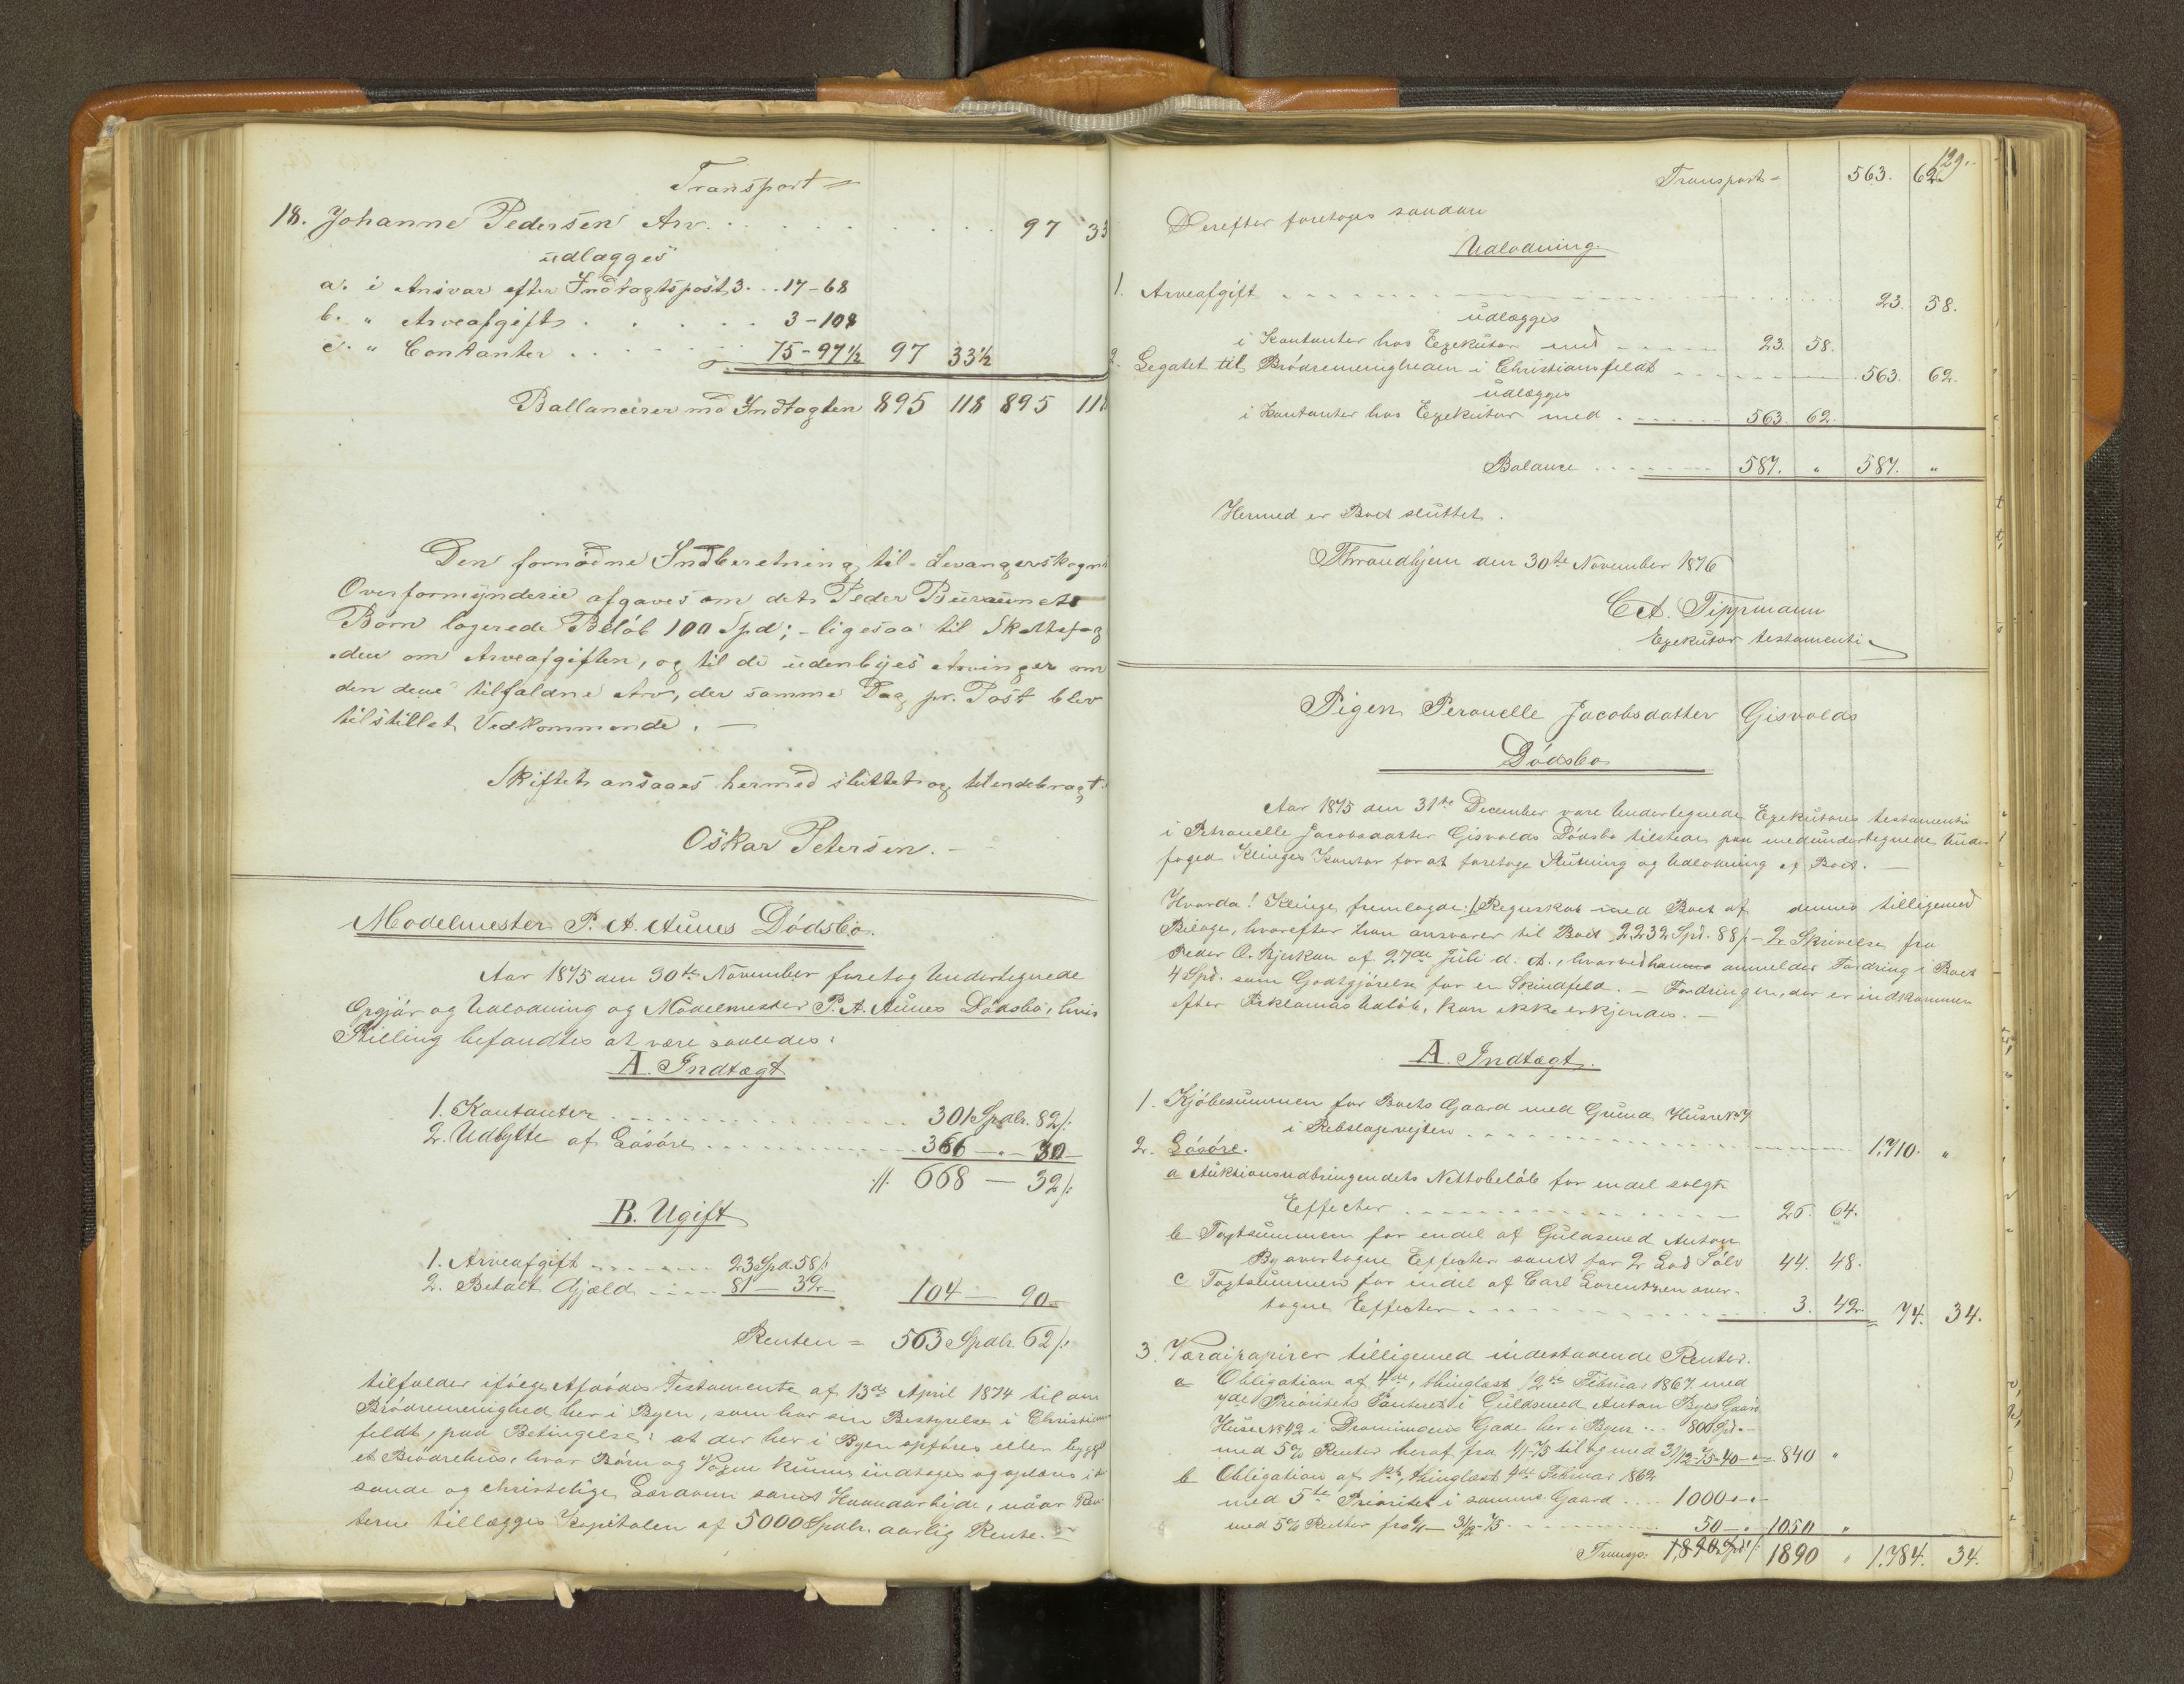 Transport =
18. Johanne Pedersen Arv . . . . . . . . . 97 33
udlægges
a. i Ansvar efter Indtægtspost 3 . . . 17 - 68
b. " Arveafgift . . . . . . 3 - 108
c. " Contanter . . . . . 75 - 97 1/2 97 33 1/2
Ballancerer med Indtægten 895 118 895 118
Den fornødne Indberetning til Levangerskogns
Overformynderie afgaves om det Peder Buraunets
Børn lagerede Beløb 100 Spd; - ligesaa til Skattefog
den om Arveafgiften, og til de udenbyes Arvinger om
den dem tilfaldne Arv, der samme Dag pr. Post blev
tilstillet Vedkommende. —
Skiftet ansaaes hermed sluttet og tilendebragt.
Oskar Petersen. —
Modelmester P. A. Aunes Dødsbo.
Aar 1875 den 30te November foretog Undertegnede
Opgjør og Udlodning og Modelmester P. A. Aunes Dødsbo, hvis
Stilling befandtes at være saaledes:
A. Indtægt
1. Kontanter . . . . . . 301 Spdlr. 82 ß.
2. Udbytte af Løsøre . . . . . . 366 — " — 30 —
//: 668 — 32 ß:
B. Ugift
1. Arveafgift . . . . . . 23 Spd. 58 ß
2. Betalt Gjæld . . . . 81 — 32 — 104 — 90 —
Resten = 563 Spdlr. 62 ß:
tilfalder ifølge Afdødes Testamente af 13de April 1874 til en
Brødremenighed her i Byen, som har sin Bestyrelse i Christians
feldt, paa Betingelse: at der her i Byen opføres eller bygges
et Brødrehus, hvor Børn og Voxne kunne indtages og oplæres i den
sande og christelige Lærdom samt Haandarbejde, naar Ren
terne tillægges Kapitalen af 5000 Spdlr. aarlig Rente. —
129.
Transport = 563. 62.
Derefter foretoges saadan
Udlodning.
1. Arveafgift . . . . . . 23. 58.
udlægges
i Kontanter hos Exekutor med . . . . 23. 58.
2. Legatet til Brødremenigheden i Christiansfeldt . . . . 563. 62.
udlægges
i Kontanter hos Exekutor med . . . . . 563. 62.
Balance . . . . . 587. " 587. "
Hermed er Boet sluttet.
Throndhjem den 30te November 1876
C A. Tippmann
Exekutor testamenti
Pigen Peronelle Jacobsdatter Gisvolds
Dødsbo
Aar 1875 den 31te December vare Undertegnede Exekutores testamenti
i Petronelle Jacobsdatter Gisvolds Dødsbo tilstede paa medundertegnede Under
foged Klinges Kontor for at foretage Slutning og Udlodning af Boet. —
Hvorda! Klinge fremlagde: 1 Regnskab med Boet af dennes tilligemed
Bilage, hvorefter han ansvarer til Boet 2232 Spd. 88 ß — 2 Skrivelse fra
Peder O. Bjerkan af 27de Juli d. A., hvorved hanne anmelder Fordring i Boet
4 Spd. som Godtgjørelse for en Skindfeld. — Fordringen, der er indkommen
efter Proklamas Udløb, kan ikke erkjendes. —
A. Indtægt.
1. Kjøbesummen for Boets Gaard med Grund, Huse No 7
i Rebslagervejten . . . . . . 1,710. "
2. Løsøre.
a Auktionsudbringendets Nettobeløb for endel solgte
Effecter . . . . . . 26. 64.
b Taxtsummen for endel af Guldsmed Anton
By overtagne Effecter samt for 2 Lod Sølv 44. 48.
c Taxtsummen for endel af Carl Lorentzen over-
tagne Effecter . . . . . . 3. 42. = 74. 34.
3. Værdipapirer tilligemed indestaaende Renter.
a Obligation af 4de, thinglæst 12te Februar 1867 med
4de Prioritets Panteret i Guldsmed Anton Byes Gaard
Huse No 42 i Dronningens Gade her i Byen . . . 800 Spd. —
med 5% Renter heraf fra 1/1-75 til og med 31/12-75 - 40 — " = 840 "
b Obligation af 1ste, thinglæst 4de Februar 1862
med 5te Prioritet i samme Gaard . . . 1000 — " —
med 5% Renter fra 1/1 — 31/12-75 . . . . . . 50 — " 1050 "
Transp: 1,890 Spd. ß 1890 " 1,784. 34.